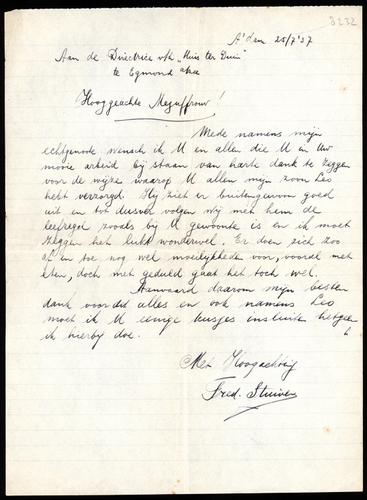 3232
A'dam 25/7'37
Aan de Directrice v/h „Huis ter Duin"
te Egmond a/zee
Hooggeachte Mejuffrouw!
Mede namens mijn
echtgenote wensch ik U en allen die U in Uw
mooie arbeid bij staan van harte dank te zeggen
voor de wijze waarop U allen mijn zoon Leo
hebt verzorgd. Hij ziet er buitengewoon goed
uit en tot dusver volgen wij met hem de
leefregel zooals bij U gewoonte is en ik moet
zeggen het lukt wonderwel. Er doen zich zoo
af en toe nog wel moeilijkheden voor, vooral met
eten, doch met geduld gaat het toch wel.
Aanvaard daarom mijn besten
dank voor dit alles en ook namens Leo
moet ik U eenige kusjes insluiten hetgeen
ik hierbij doe.
Met Hoogachting
Fred. Stuiver